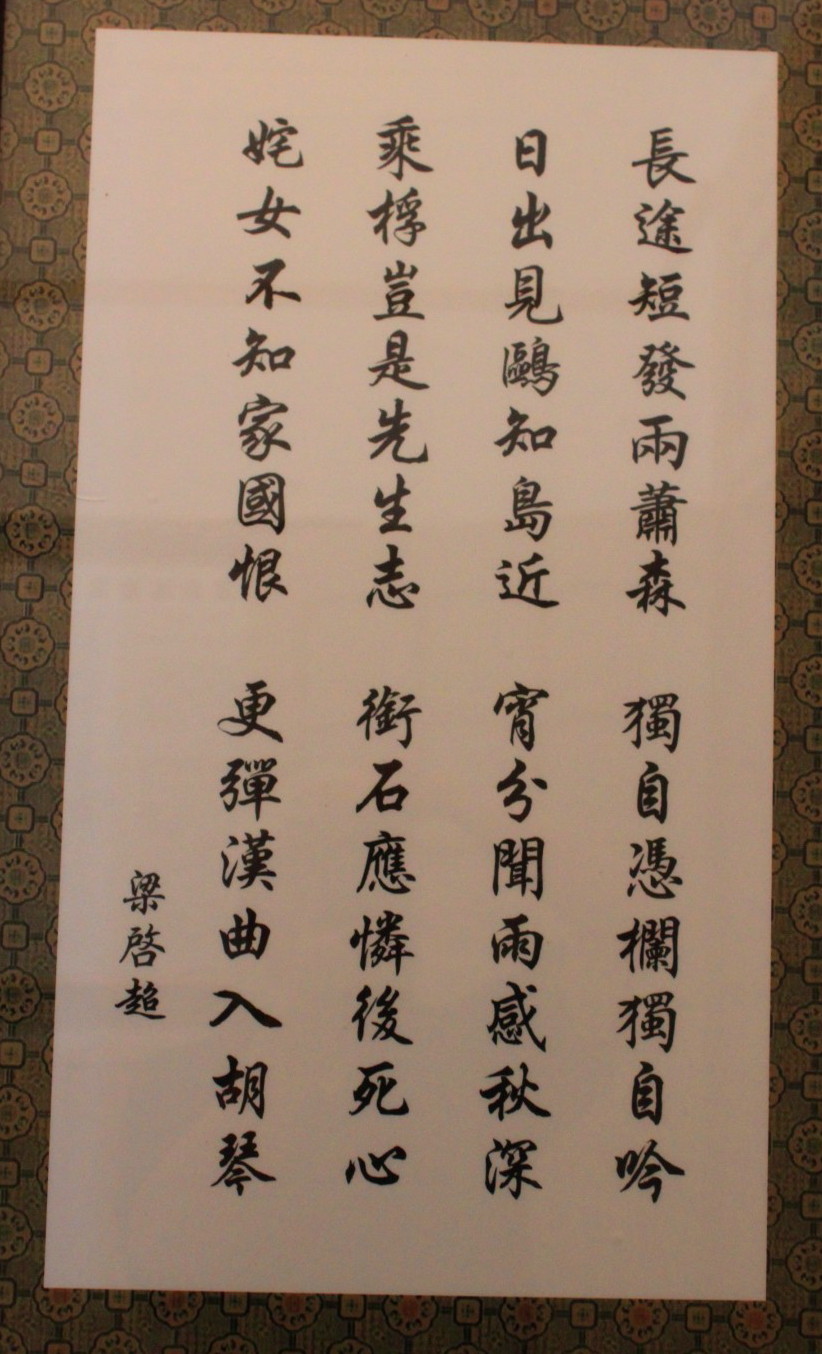 長途短發兩蕭森　獨自憑欄獨自吟
日出見鷗知島近　宵分聞雨感秋深
乘桴豈是先生志　銜石應憐後死心
姹女不知家國恨　更彈漢曲入胡琴
梁啓超